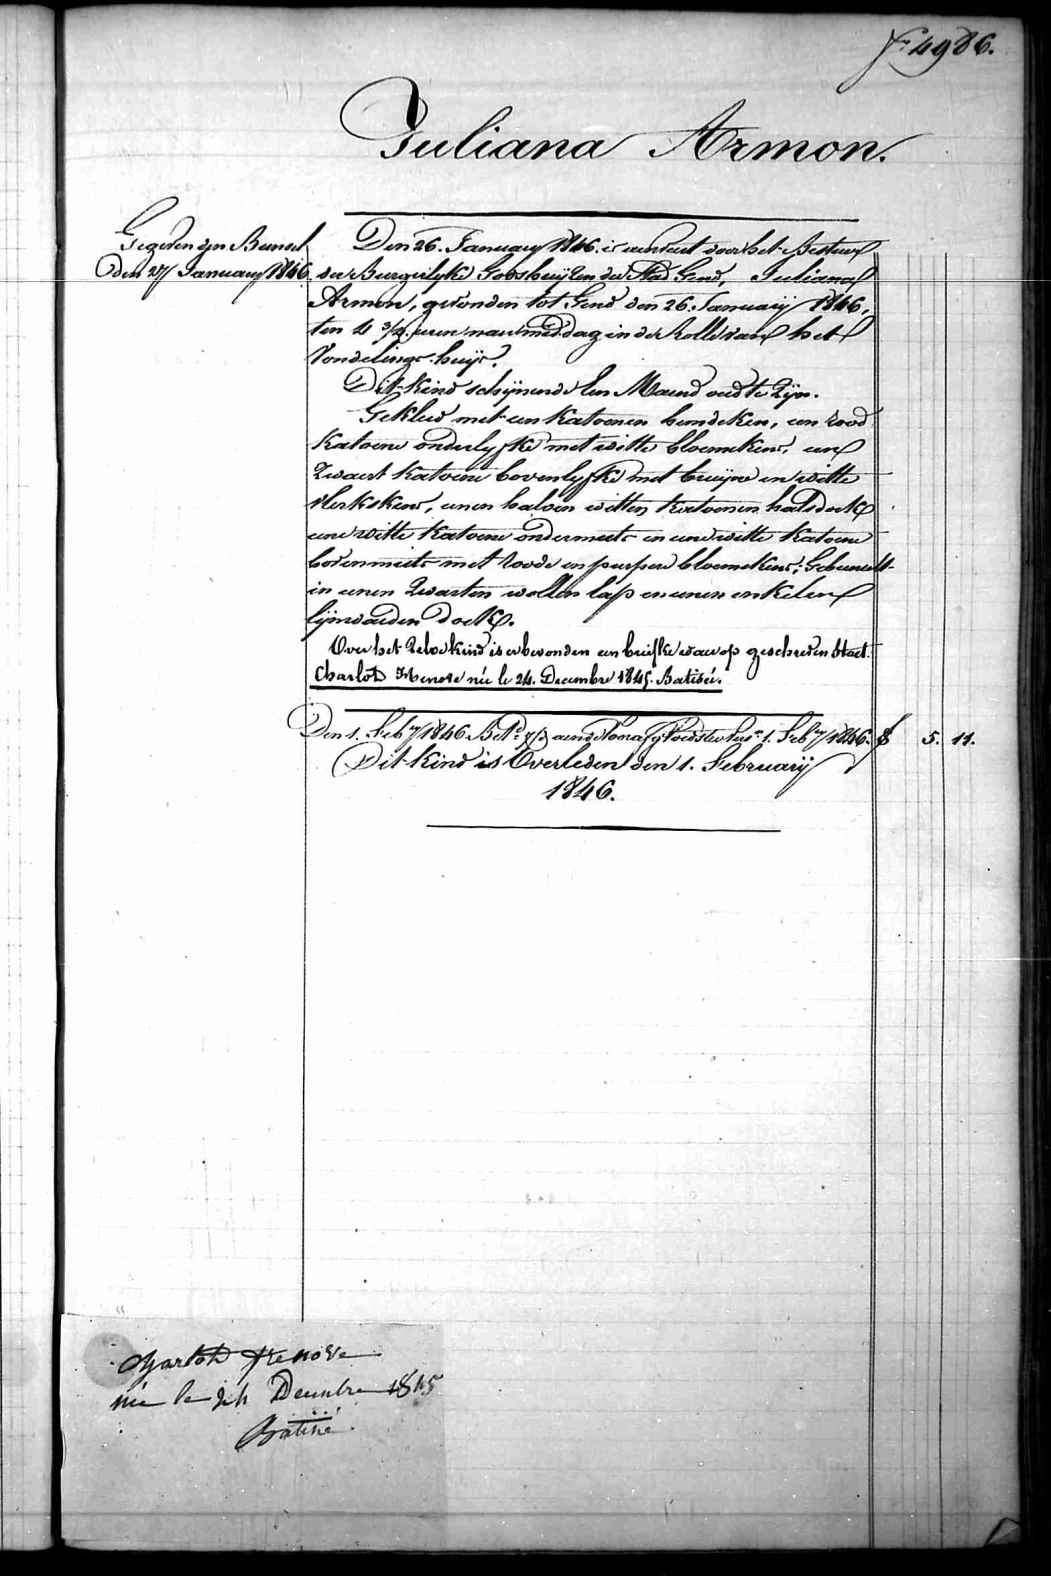 F. 4986.
Juliana Armon.
Gegeven zyn Bunsel
den 27 January 1846.
Den 26. January 1846. is aenveert door het Bestuer
der Burgerlyke Godshuyzen der Stad Gend, Juliana
Armon, gevonden tot Gend den 26. January 1846,
ten 4 3/4 uren naermiddag in de Rolle van het
Vondelings-huys.
Dit Kind schynende Een Maend oud te Zyn.
Gekleed met een Katoenen hemdeken, een rood
Katoene onderlyfke met witte bloemekens, een
Zwaert Katoene bovenlyfke met bruyne en witte
vlerkskens, eenen halven witten Katoenen halsdoek
eene witte Katoene ondermuts en eene witte Katoene
bovenmuts met roode en purpere bloemekens; Gebunselt
in eenen Zwarten wollen lap en eenen enkelen
lynwaeden doek.
Over het Zelve kind is er bevonden een briefke waer op geschreven staet.
Charlot Henore née le 24. Decembre 1845. Batisé.
Den 1. Feb.y 1846 Bet.d aen de 1. Feb.y 1846. f 5. 11.
Dit kind is Overleden den 1. February
1846.
née le 24 Decenbre 1845
Batisé